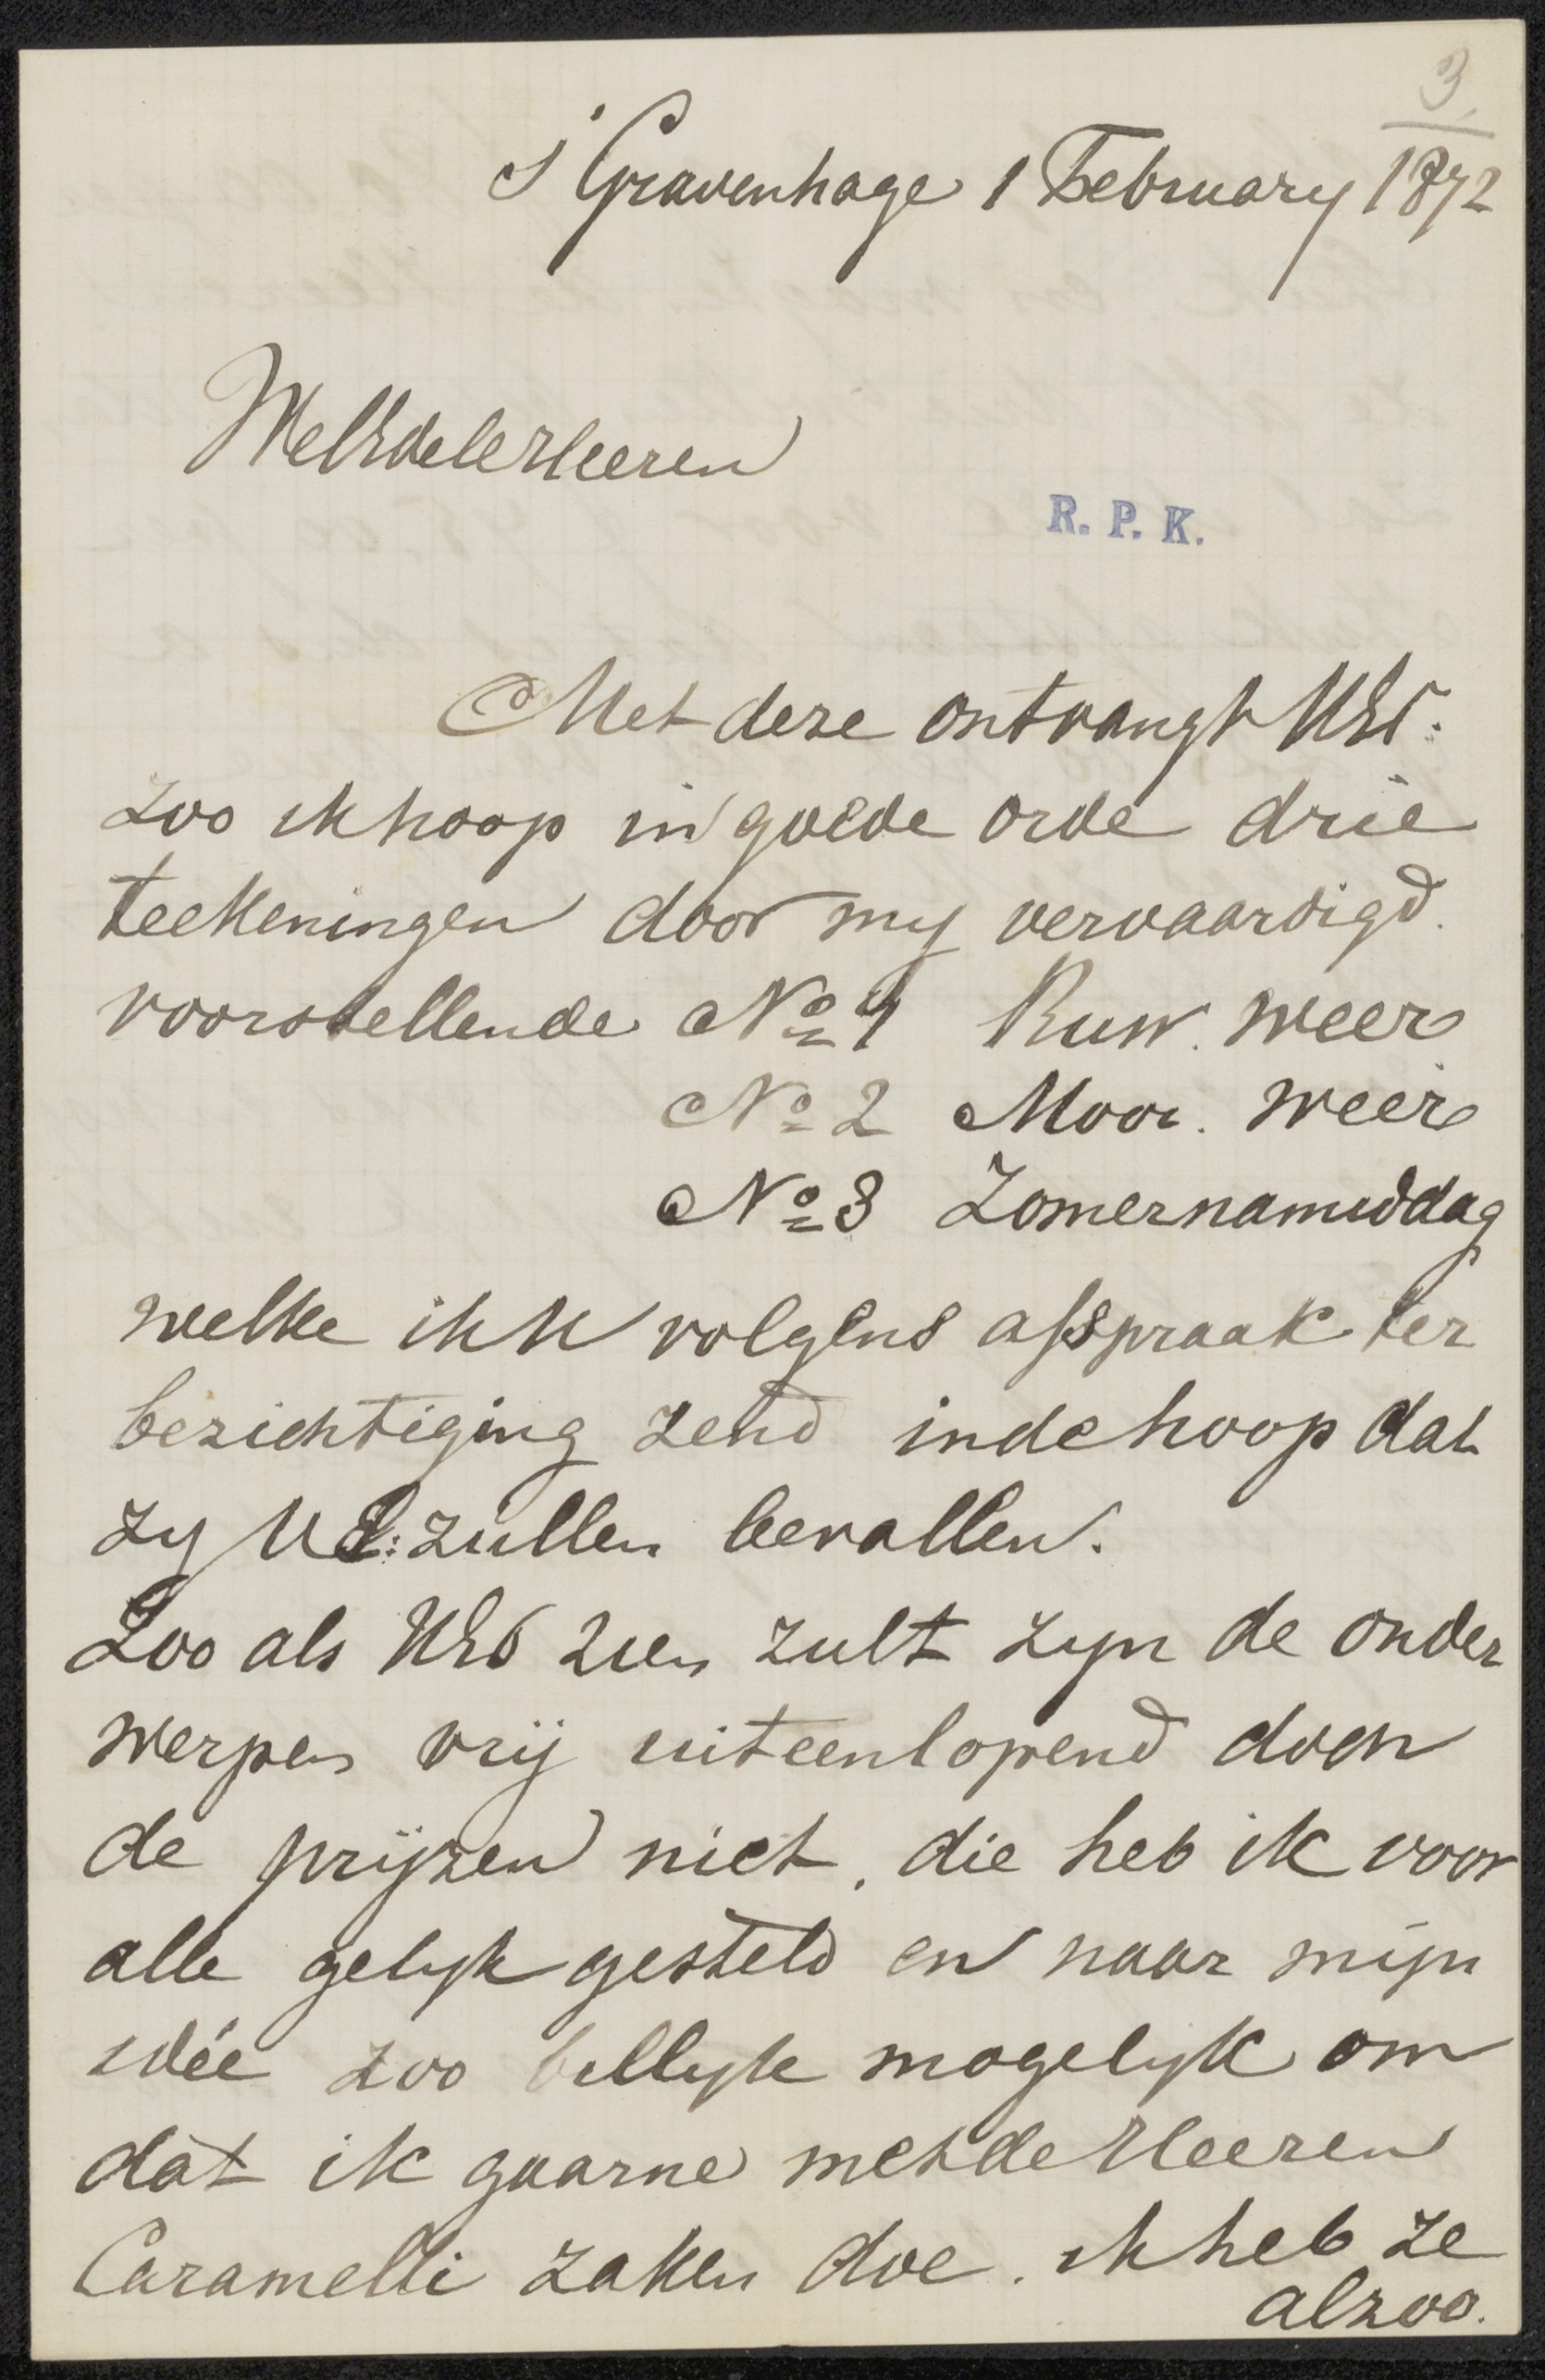 3
S' Gravenhage 1 February 1872
WelEdele Heeren
R. P. K.
Met deze ontvangt UEd:
zoo ik hoop in goede orde drie
teekeningen door my vervaardigd.
voorstellende No 1 Ruw. weer
No 2 Mooi. weer
No 3 Zomernamiddag
welke ik U volgens afspraak ter
bezichtiging zend in de hoop dat
zy UE: zullen bevallen.
Zoo als UEd zien zult zyn de onder
werpen vrij uiteenlopend doch
de prijzen niet. die heb ik voor
alle gelyk gesteld en naar mijn
idée zoo billyk mogelyk om
dat ik gaarne met de Heeren
Caramelli zaken doe. ik heb ze
alzoo.